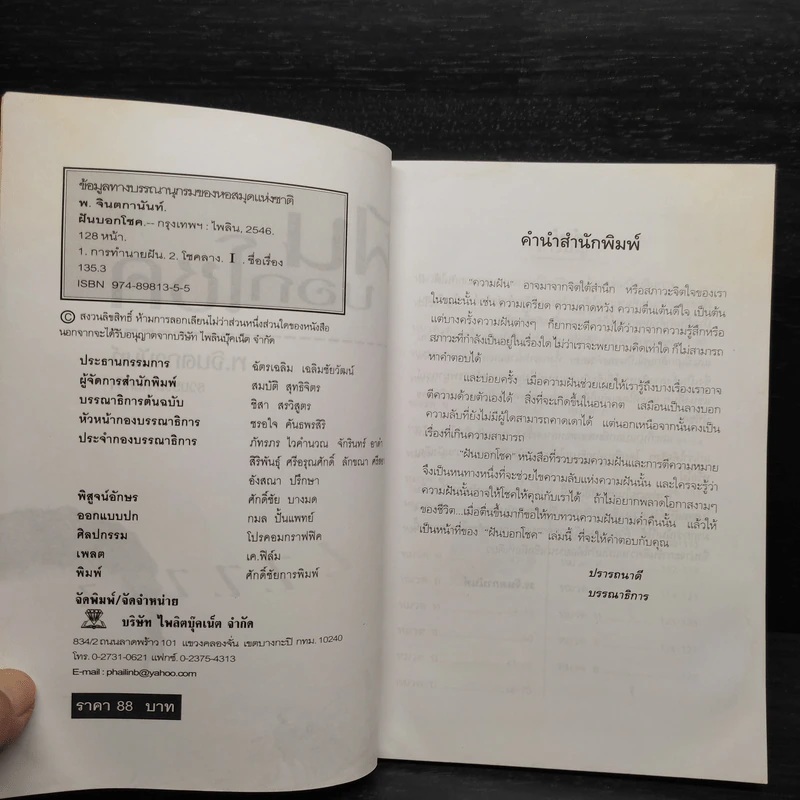 ข้อมูลทางบรรณานุกรมของหอสมุดแห่งชาติ
พ. จินตกานันท์.
ฝันบอกโชค.-- กรุงเทพฯ : ไพลิน, 2546.
128 หน้า.
1. การทำนายฝัน. 2. โชคลาง. I . ชื่อเรื่อง
135.3
ISBN 974-89813-5-5
© สงวนลิขสิทธิ์ ห้ามการลอกเลียนไม่ว่าส่วนหนึ่งส่วนใดของหนังสือ
นอกจากจะได้รับอนุญาตจากบริษัท ไพลินบุ๊คเน็ต จำกัด
ประธานกรรมการ ฉัตรเฉลิม เฉลิมชัยวัฒน์
ผู้จัดการสำนักพิมพ์ สมบัติ สุทธิจิตร
บรรณาธิการต้นฉบับ ชิสา สรวิสูตร
หัวหน้ากองบรรณาธิการ ชรอใจ คันธพรสิริ
ประจำกองบรรณาธิการ ภัทรภร ไวคำนวณ จักรินทร์
สิริพันธุ์ ศรีอรุณศักดิ์ ลักขณา
อังสณา ปรึกษา
พิสูจน์อักษร ศักดิ์ชัย บางมด
ออกแบบปก กมล ปั้นแพทย์
ศิลปกรรม โปรคอมกราฟฟิค
เพลต เค.ฟิล์ม
พิมพ์ ศักดิ์ชัยการพิมพ์
จัดพิมพ์/จัดจำหน่าย
บริษัท ไพลิตบุ๊คเน็ต จำกัด
834/2 ถนนลาดพร้าว 101 แขวงคลองจั่น เขตบางกะปิ กทม. 10240
โทร. 0-2731-0621 แฟกซ์. 0-2375-4313
E-mail : phailinb@yahoo.com
ราคา 88 บาท
คำนำสำนักพิมพ์
"ความฝัน" อาจมาจากจิตใต้สำนึก หรือสภาวะจิตใจของเรา
ในขณะนั้น เช่น ความเครียด ความคาดหวัง ความตื่นเต้นดีใจ เป็นต้น
แต่บางครั้งความฝันต่างๆ ก็ยากจะตีความได้ว่ามาจากความรู้สึกหรือ
สภาวะที่กำลังเป็นอยู่ในเรื่องใด ไม่ว่าเราจะพยายามคิดเท่าใด ก็ไม่สามารถ
หาคำตอบได้
และบ่อยครั้ง เมื่อความฝันช่วยเผยให้เรารู้ถึงบางเรื่องเราอาจ
ตีความด้วยตัวเองได้ สิ่งที่จะเกิดขึ้นในอนาคต เสมือนเป็นลางบอก
ความลับที่ยังไม่มีผู้ใดสามารถคาดเดาได้ แต่นอกเหนือจากนั้นคงเป็น
เรื่องที่เกินความสามารถ
"ฝันบอกโชค" หนังสือที่รวบรวมความฝันและการตีความหมาย
จึงเป็นหนทางหนึ่งที่จะช่วยไขความลับแห่งความฝันนั้น และใครจะรู้ว่า
ความฝันนั้นอาจให้โชคให้คุณกับเราได้ ถ้าไม่อยากพลาดโอกาสงามๆ
ของชีวิต...เมื่อตื่นขึ้นมาก็ขอให้ทบทวนความฝันยามค่ำคืนนั้น แล้วให้
เป็นหน้าที่ของ "ฝันบอกโชค" เล่มนี้ ที่จะให้คำตอบกับคุณ
ปรารถนาดี
บรรณาธิการ